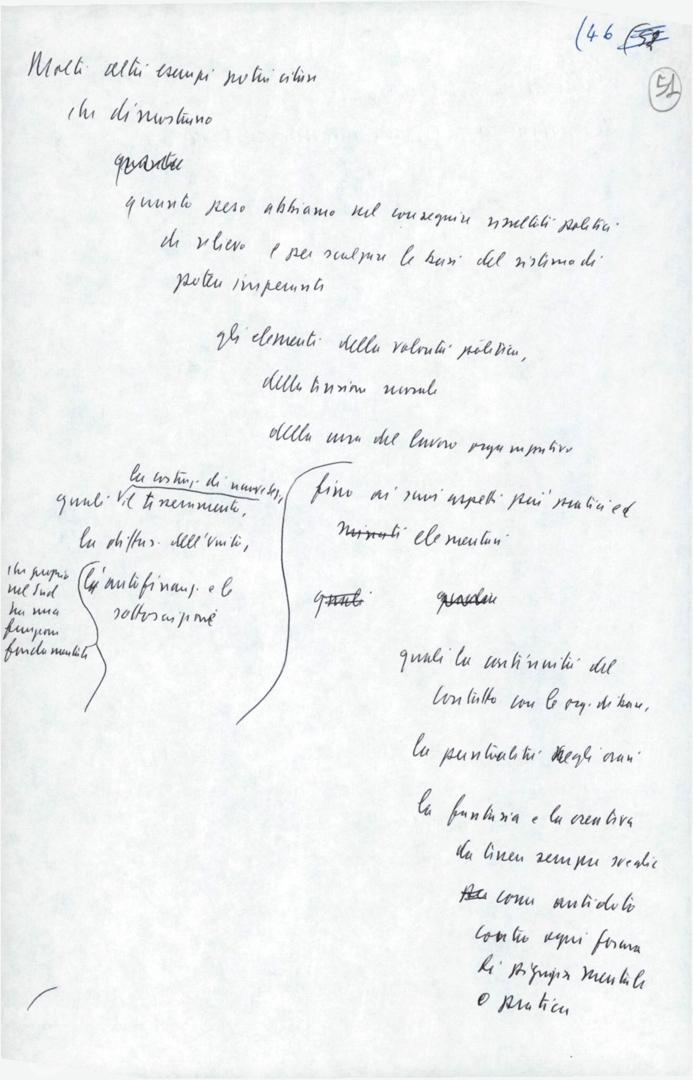 (46
51
Molti altri esempi potrei citare
che dimostrano
quanto
quanto peso abbiamo nel conseguire risultati politici
di rilievo e per scalpire le basi del sistema di
potere imperante
gli elementi della volontà politica,
della tensione morale
della cura del lavoro organizzativo
fino ai suoi aspetti più pratici ed
minuti elementari
quali
quali la continuità del
contatto con le org. di base,
la puntualità negli orari
la fantasia e la creativa
da tener sempre sveglie
come antidoto
contro ogni forma
di pigrizia mentale
o pratica
la costruz. di nuove sez,
quali il tesseramento,
la diffus. dell'Unità,
l'autofinanz. e le
sottoscrizione
che proprio
nel Sud
ha una
funzione
fondamentale